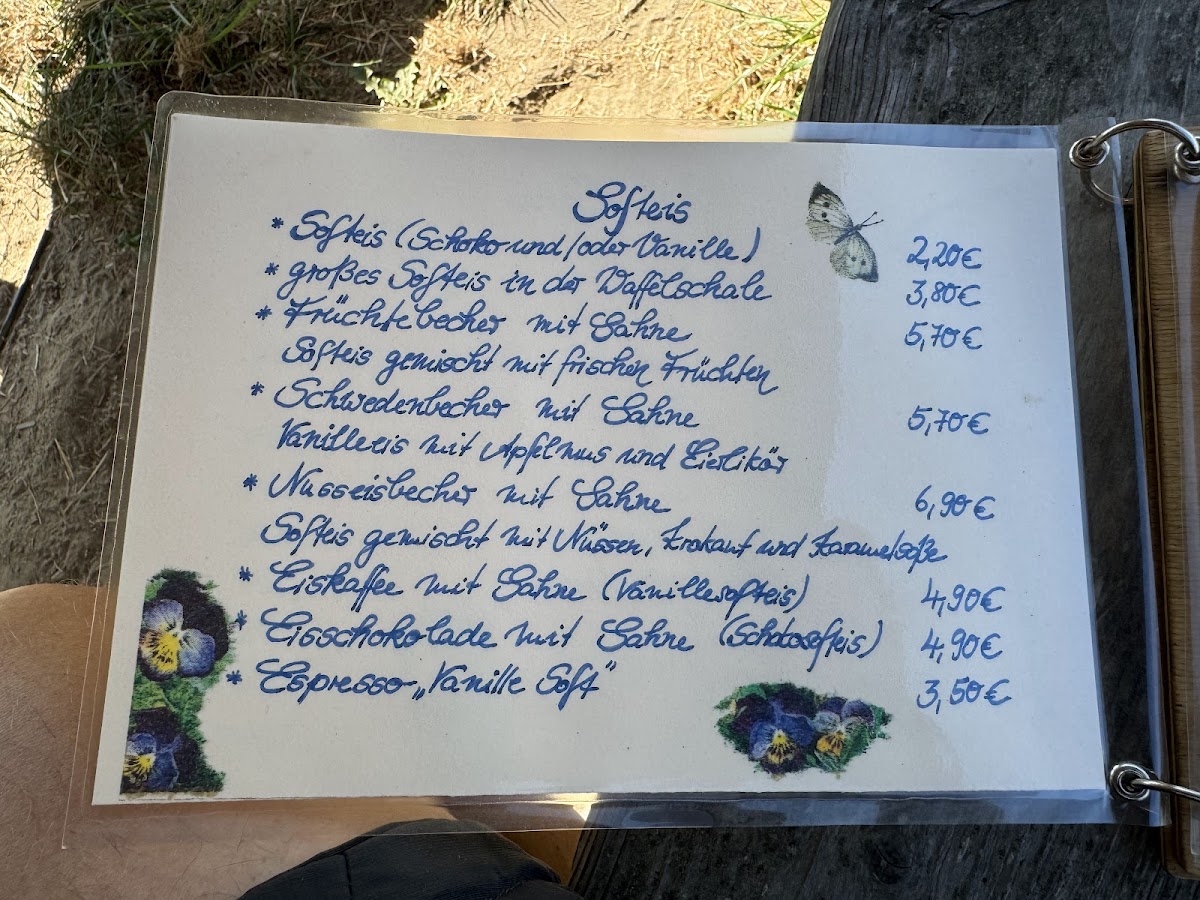 Softeis
* Softeis (Schoko und/oder Vanille) 2,20€
* großes Softeis in der Waffelschale 3,80€
* Früchtebecher mit Sahne 5,70€
Softeis gemischt mit frischen Früchten
* Schwedenbecher mit Sahne 5,70€
Vanilleeis mit Apfelmus und Eierlikör
* Nusseisbecher mit Sahne 6,90€
Softeis gemischt mit Nüssen, Krokant und Karamelsoße
* Eiskaffee mit Sahne (Vanillesofteis) 4,90€
* Eisschokolade mit Sahne (Schokosofteis) 4,90€
* Espresso „Vanille Soft" 3,50€